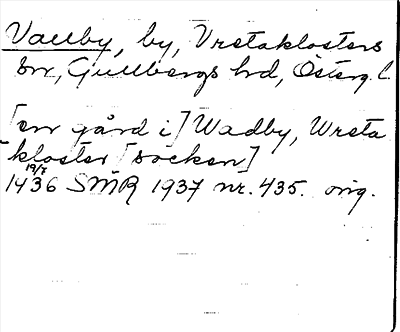 Vallby, by, Vretaklosters
sn, Gullbergs hd, Österg. l.
[en gård i] Wadby, Wreta
kloster [socken]
19/7
1436 SMR 1937 nr. 435. orig.